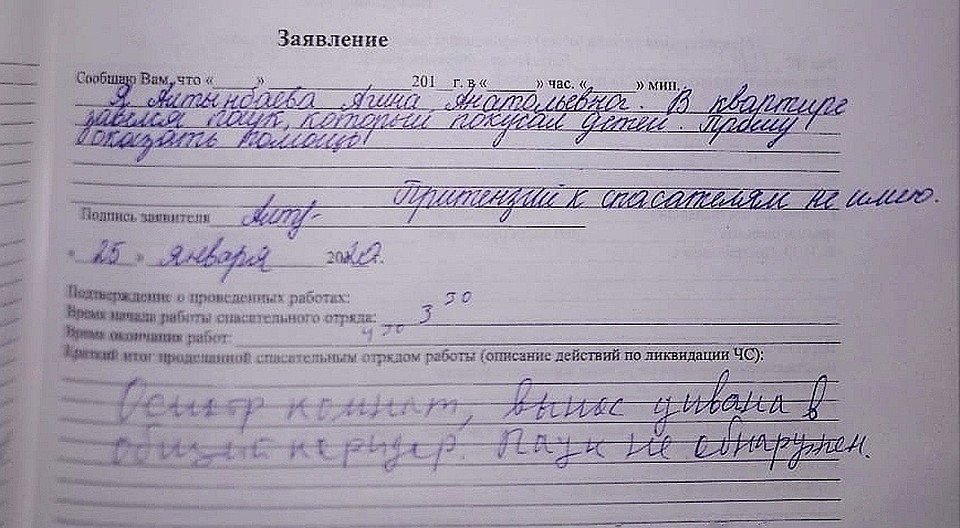 Заявление
Сообщаю Вам, что «      »                201   г. в «      » час. «      » мин.
Я Алтынбаева Алина Анатольевна. В квартире
завелся паук, который покусал детей. Прошу
оказать помощь
Притензий к спасателям не имею.
Подпись заявителя
« 25 » января 2020.
Подтверждение о проведенных работах:
Время начала работы спасательного отряда: 3 30
Время окончания работ: 4 30
Краткий итог проделанной спасательным отрядом работы (описание действий по ликвидации ЧС):
Осмотр комнат, вынос дивана в
общий каридор. Паук не обнаружен.